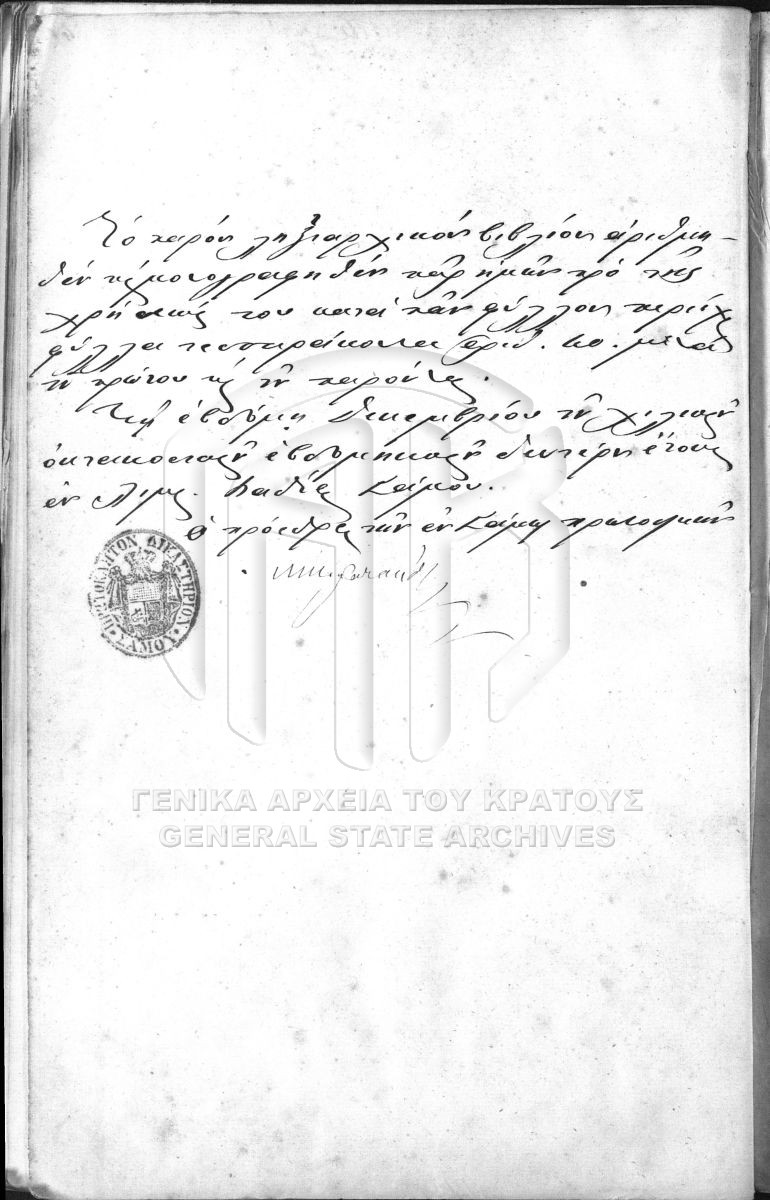 Τό παρόν ληξιαρχικόν βιβλίον ἀριθμη-
θέν κ μονογραφηθέν παρ' ἡμῶν πρό τῆς
χρήσεώς του κατά πᾶν φύλλον περιέχει
φύλλα τεσσαράκοντα ἀριθ. 40. μετά
τοῦ πρώτου κ τοῦ παρόντος.
Τῇ ἑβδόμῃ Δεκεμβρίου τοῦ χιλιοστοῦ
ὀκτακοσιοστοῦ ἑβδομηκοστοῦ δευτέρου ἔτους
ἐν Λιμ. Βαθέος Σάμου.
Ὁ πρόεδρος τῶν ἐν Σάμῳ πρωτοδικῶν
ΠΡΩΤΟΚΛΗΤΟΝ ΔΙΚΑΣΤΗΡΙΟΝ ΣΑΜΟΥ
ΓΕΝΙΚΑ ΑΡΧΕΙΑ ΤΟΥ ΚΡΑΤΟΥΣ
GENERAL STATE ARCHIVES